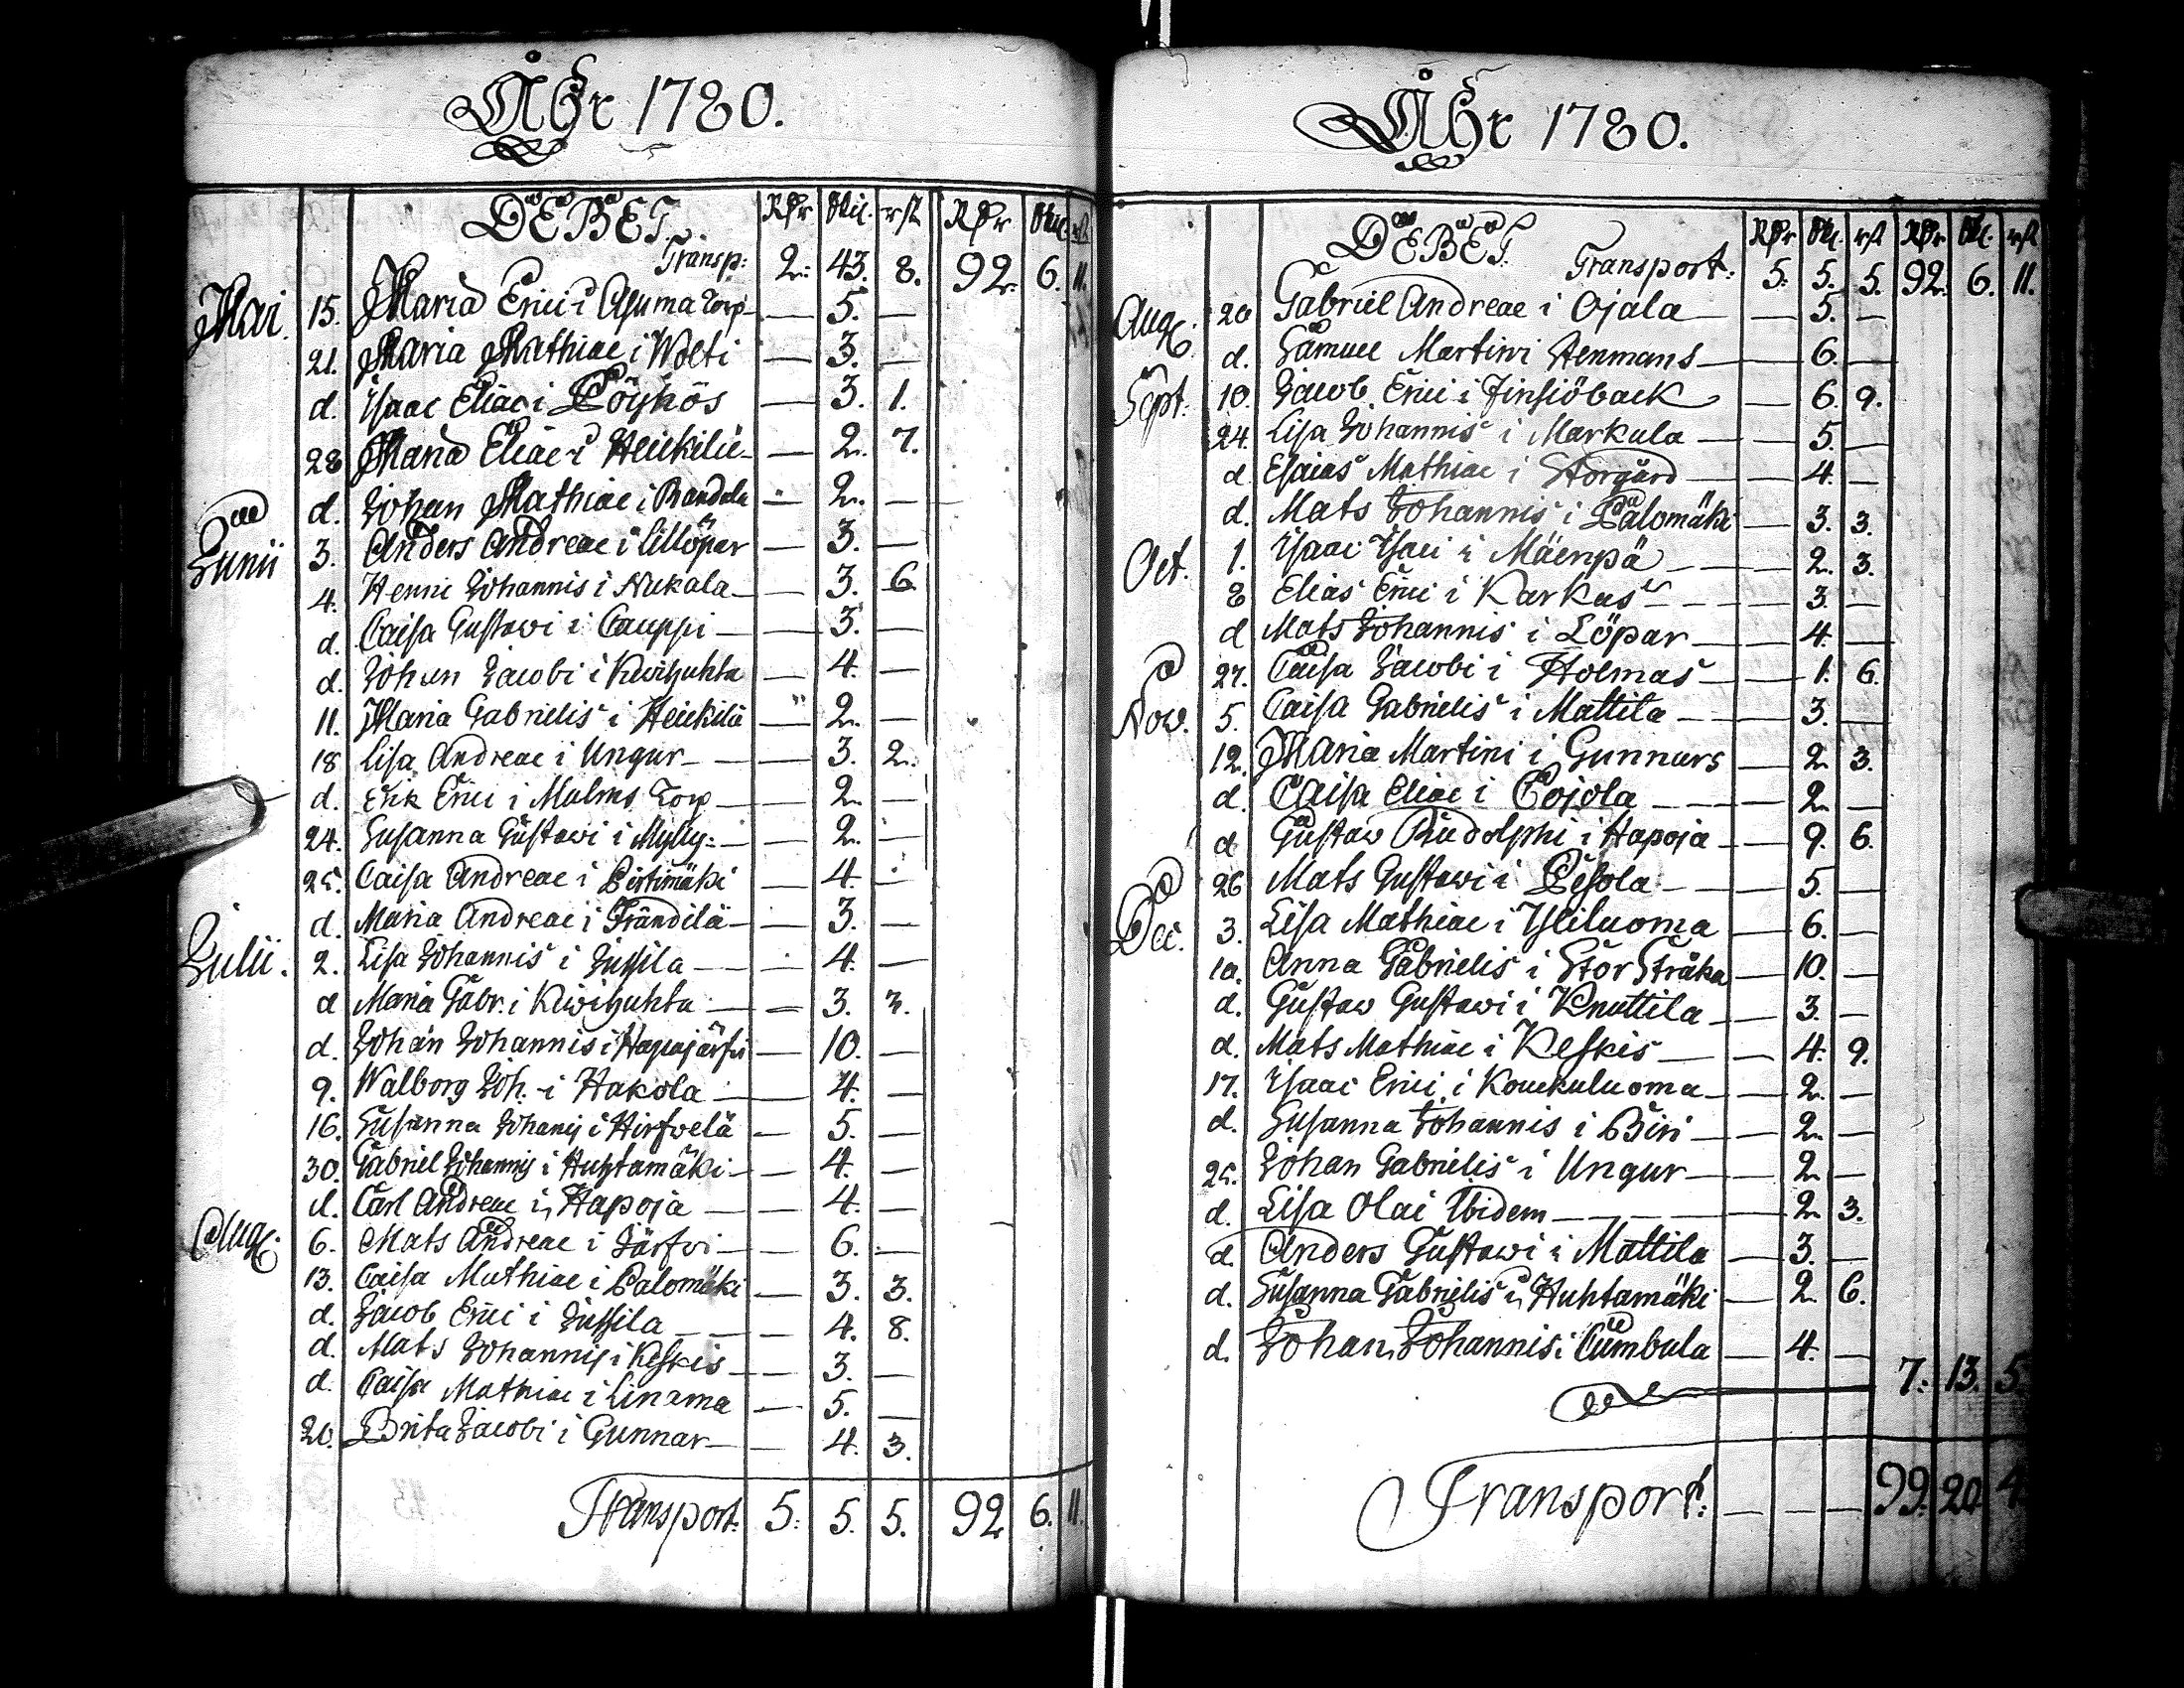 Åhr 1780.
DEBET. RDr Skil. rst RDr Skil. rst
Transp: 2: 43. 8. 92: 6. 11.
Mai. 15. Maria Erici i Asuma torp — 5. —
21. Maria Mathiae i Wolti — 3. —
d. Isaac Eliae i Pöyhös — 3. 1.
28 Maria Eliae i Heickilä — 2. 7.
d. Johan Mathiae i Bandala — 2. —
Junii 3. Anders Andreae i Lillöpar — 3. —
4. Henric Johannis i Nukala — 3. 6
d. Caisa Gustavi i Cauppi — 3. —
d. Johan Jacobi i Kiwihuhta — 4. —
11. Maria Gabrielis i Heickilä — 2. —
18 Lisa Andreae i Ungur — 3. 2.
d. Erik Erici i Malms Torp — 2. —
24. Susanna Gustavi i Mylly: — 2. —
25. Caisa Andreae i Pistimäki — 4. —
d. Maria Andreae i Frändilä — 3. —
Julii. 2. Lisa Johannis i Jussila — 4. —
d Maria Gabr. i Kiwihuhta — 3. 3.
d. Johan Johannis i Hapajärfvi — 10. —
9. Walborg Joh. i Hakola — 4. —
16. Susanna Johanis i Hirfvelä — 5. —
30. Gabriel Johannis i Huhtamäki — 4. —
d. Carl Andreae i Hapoja — 4. —
Aug. 6. Mats Andreae i Järfvi — 6. —
13. Caisa Mathiae i Palomäki — 3. 3.
d. Jacob Erici i Jussila — 4. 8.
d. Mats Johannis i Keskis — 3. —
d. Caisa Mathiae i Linama — 5. —
20. Brita Jacobi i Gunnar — 4. 3.
Transport: 5: 5. 5. 92 6. 11.
Åhr 1780.
DEBET. RDr Skl. rst RDr Skl. rst
Transport: 5: 5. 5. 92: 6. 11.
Aug. 20 Gabriel Andreae i Ojala — 5. —
d. Samuel Martini Henmans — 6. —
Sept: 10. Jacob Erici i Finsiöback — 6. 9.
24. Lisa Johannis i Markula — 5. —
d Esaias Mathiae i Storgård — 4. —
d. Mats Johannis i Palomäki — 3. 3.
Oct. 1. Isaac Isaci i Mäenpä — 2. 3.
8 Elias Erici i Karkas — 3. —
d Mats Johannis i Löpar — 4. —
27. Caisa Jacobi i Holmas — 1. 6.
Nov. 5. Caisa Gabrielis i Mattila — 3. —
12. Maria Martini i Gunnars — 2. 3.
d. Caisa Eliae i Cojola — 2. —
d Gustav Rudolphi i Hapoja — 9. 6.
26 Mats Gustavi i Pesola — 5. —
Dec. 3. Lisa Mathiae i Yliluoma — 6. —
10. Anna Gabrielis i Stor Stråka — 10. —
d. Gustav Gustavi i Knuttila — 3. —
d. Mats Mathiae i Keskis — 4. 9.
17. Isaac Erici i Kouckuluoma — 2. —
d. Susanna Johannis i Biri — 2. —
25. Johan Gabrielis i Ungur — 2. —
d. Lisa Olai Ibidem — 2. 3.
d. Anders Gustavi i Mattila — 3. —
d. Susanna Gabrielis i Huhtamäki — 2. 6.
d. Johan Johannis i Cumbula — 4. —
7: 13. 5.
Transport: — — — 99. 20 4.